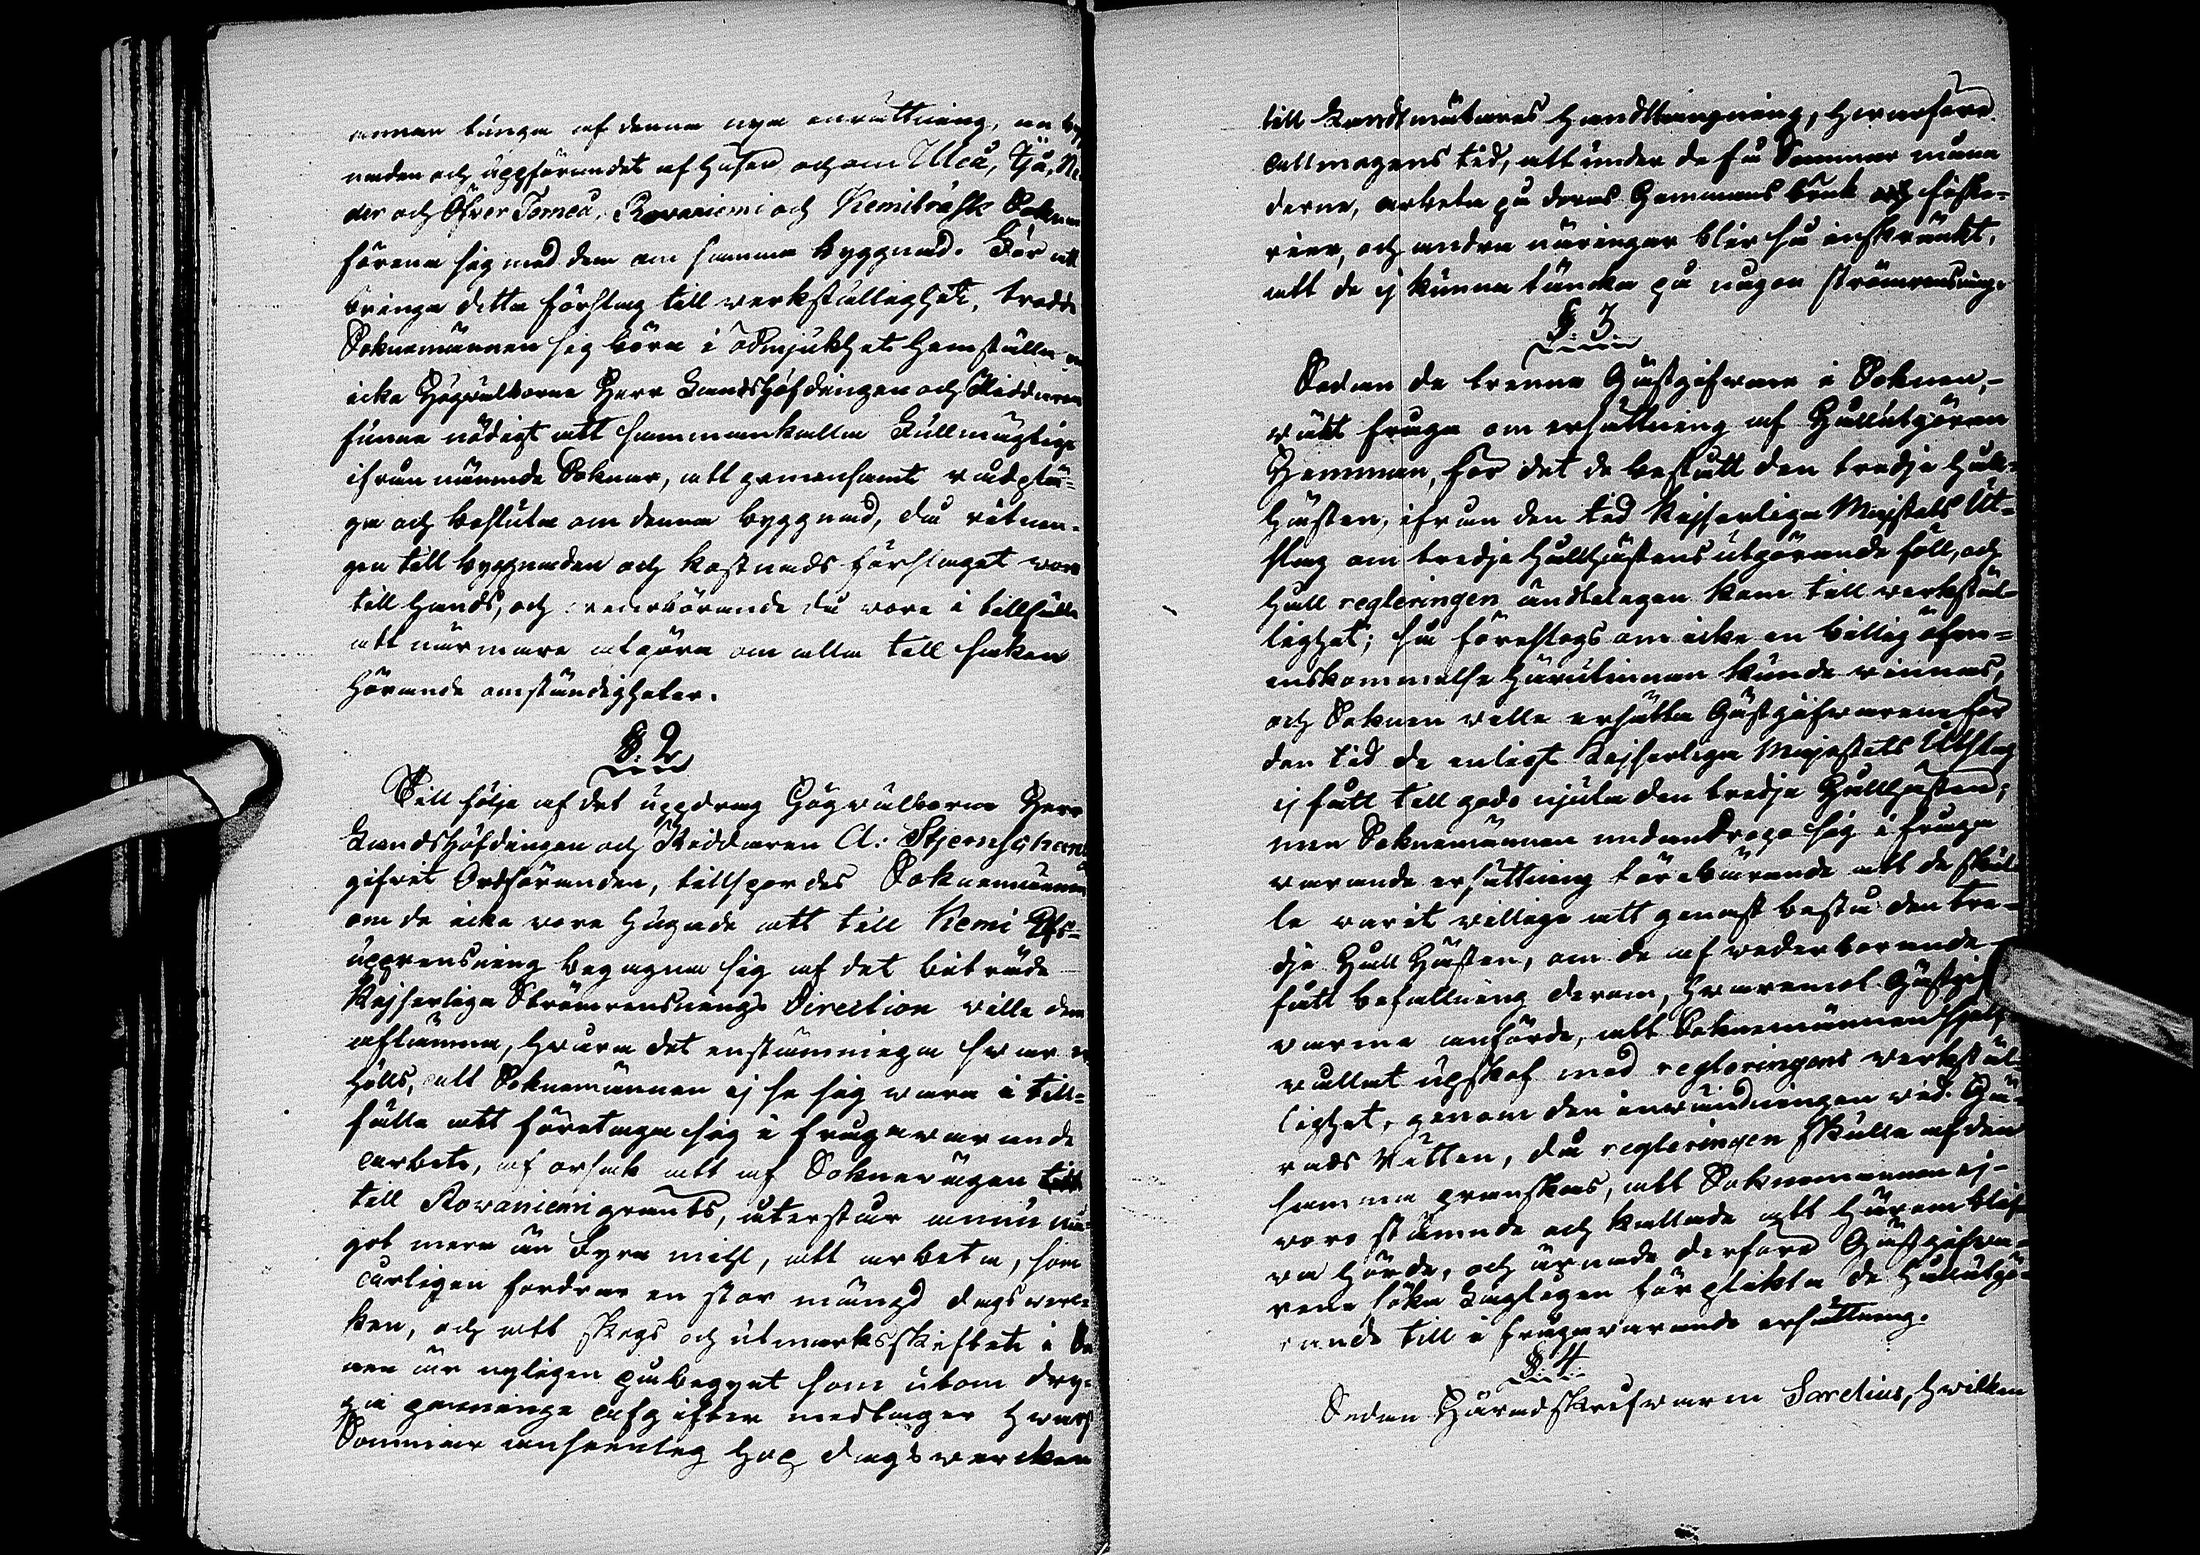 annan tunga af denna nya inrättning, än byg
naden och uppförandet af husen, och om Uleå, Ijå, Ne
der och Öfver Torneå, Rovaniemi och Kemiträsk Soknar
förena sig med dem om samma byggnad. För att
bringa detta förslag till verkställighet, trodde
Soknemännen sig böra i ödmjukhet hemställa om
icke Högvälborne Herr Landshöfdingen och Riddaren
funne nödigt att sammankalla Fullmägtige
ifrån nämnde Soknar, att gemensamt rådplä=
ga och besluta om denna byggnad, då ritnin=
gen till byggnaden och kostnads förslaget vore
till hands, och vederbörande då vore i tillfälle
att närmare afgöra om alla till saken
hörande omständigheter.
§. 2
Till följe af det uppdrag Högvälborne Herr
Landshöfdingen och Riddaren A. Stjernschantz
gifvit Ordföranden, tillspordes Soknemännen
om de icke vore hugade att till Kemi Elfs=
upprensning begagna sig af det biträde
Kejserliga Strömrensnings Direction ville dem
aflämna, hvara det enstämmiga svar er
hölls, att Soknemännen ej se sig vara i till=
fälle att företaga sig i frugavarande
arbete, af orsak att af Soknevägen
till Rovaniemi gränts, återstår ännu nå=
got mera än Fyra mihl, att arbeta, som
årligen fordrar en stor mängd dagsver=
ken, och att skogs och utmarksskiftet i So
nen är nyligen påbegynt som utom dry=
ga pennings afgifter medtager hvarje
Sommar ansenlig hop dagsverken
till Landtmätares handtlangning, hvarföre
allmogens tid, att under de få Sommar måna
derne, arbeta på deras Hemmans bruk och fiske=
rier, och andra näringar blir så inskränkt,
att de ej kunna täncka på någon strömrensning.
§. 3.
Sedan de trenne Gästgifvarne i Soknen,
väkt fråga om ersättning af Hållutgörande
Hemman, för det de bestått den tredje Håll=
Hästen, ifrån den tid Kejserliga Majestäts Ut=
slag om tredje Hållhästens utgörande föll, och
Håll regleringen ändteligen kom till verkstäl=
lighet; så föreslogs om icke en billig öfver=
enskommelse härutinnan kunde vinnas,
och Soknen ville ersätta Gästgifvarene för
den tid de enligt Kejserliga Majestäts Utslag
ej fått till godo njuta den tredje Hållhästen;
men Soknemännen undandrogo sig i fråga
varande ersättning förebärande att de skul
le varit villige att genast bestå den tre=
dje Håll Hästen, om de af vederbörande
fått befallning derom, hvaremot Gästgif
varne anförde, att Soknemännen sjelf
vållat upskof med regleringens verkstäl=
lighet, genom den invändningen vid Hä=
rads Rätten, då regleringen skulle af den
samma granskas, att Soknemännen ej
voro stämde och kallade att häröm blif
va hörde, och ärnade derföre Gästgifva=
rene söka Lagligen förplikta de Hållutgö=
rande till i frågavarande ersättning.
§. 4.
Sedan Häradskrifvaren Sarelius, hvilken